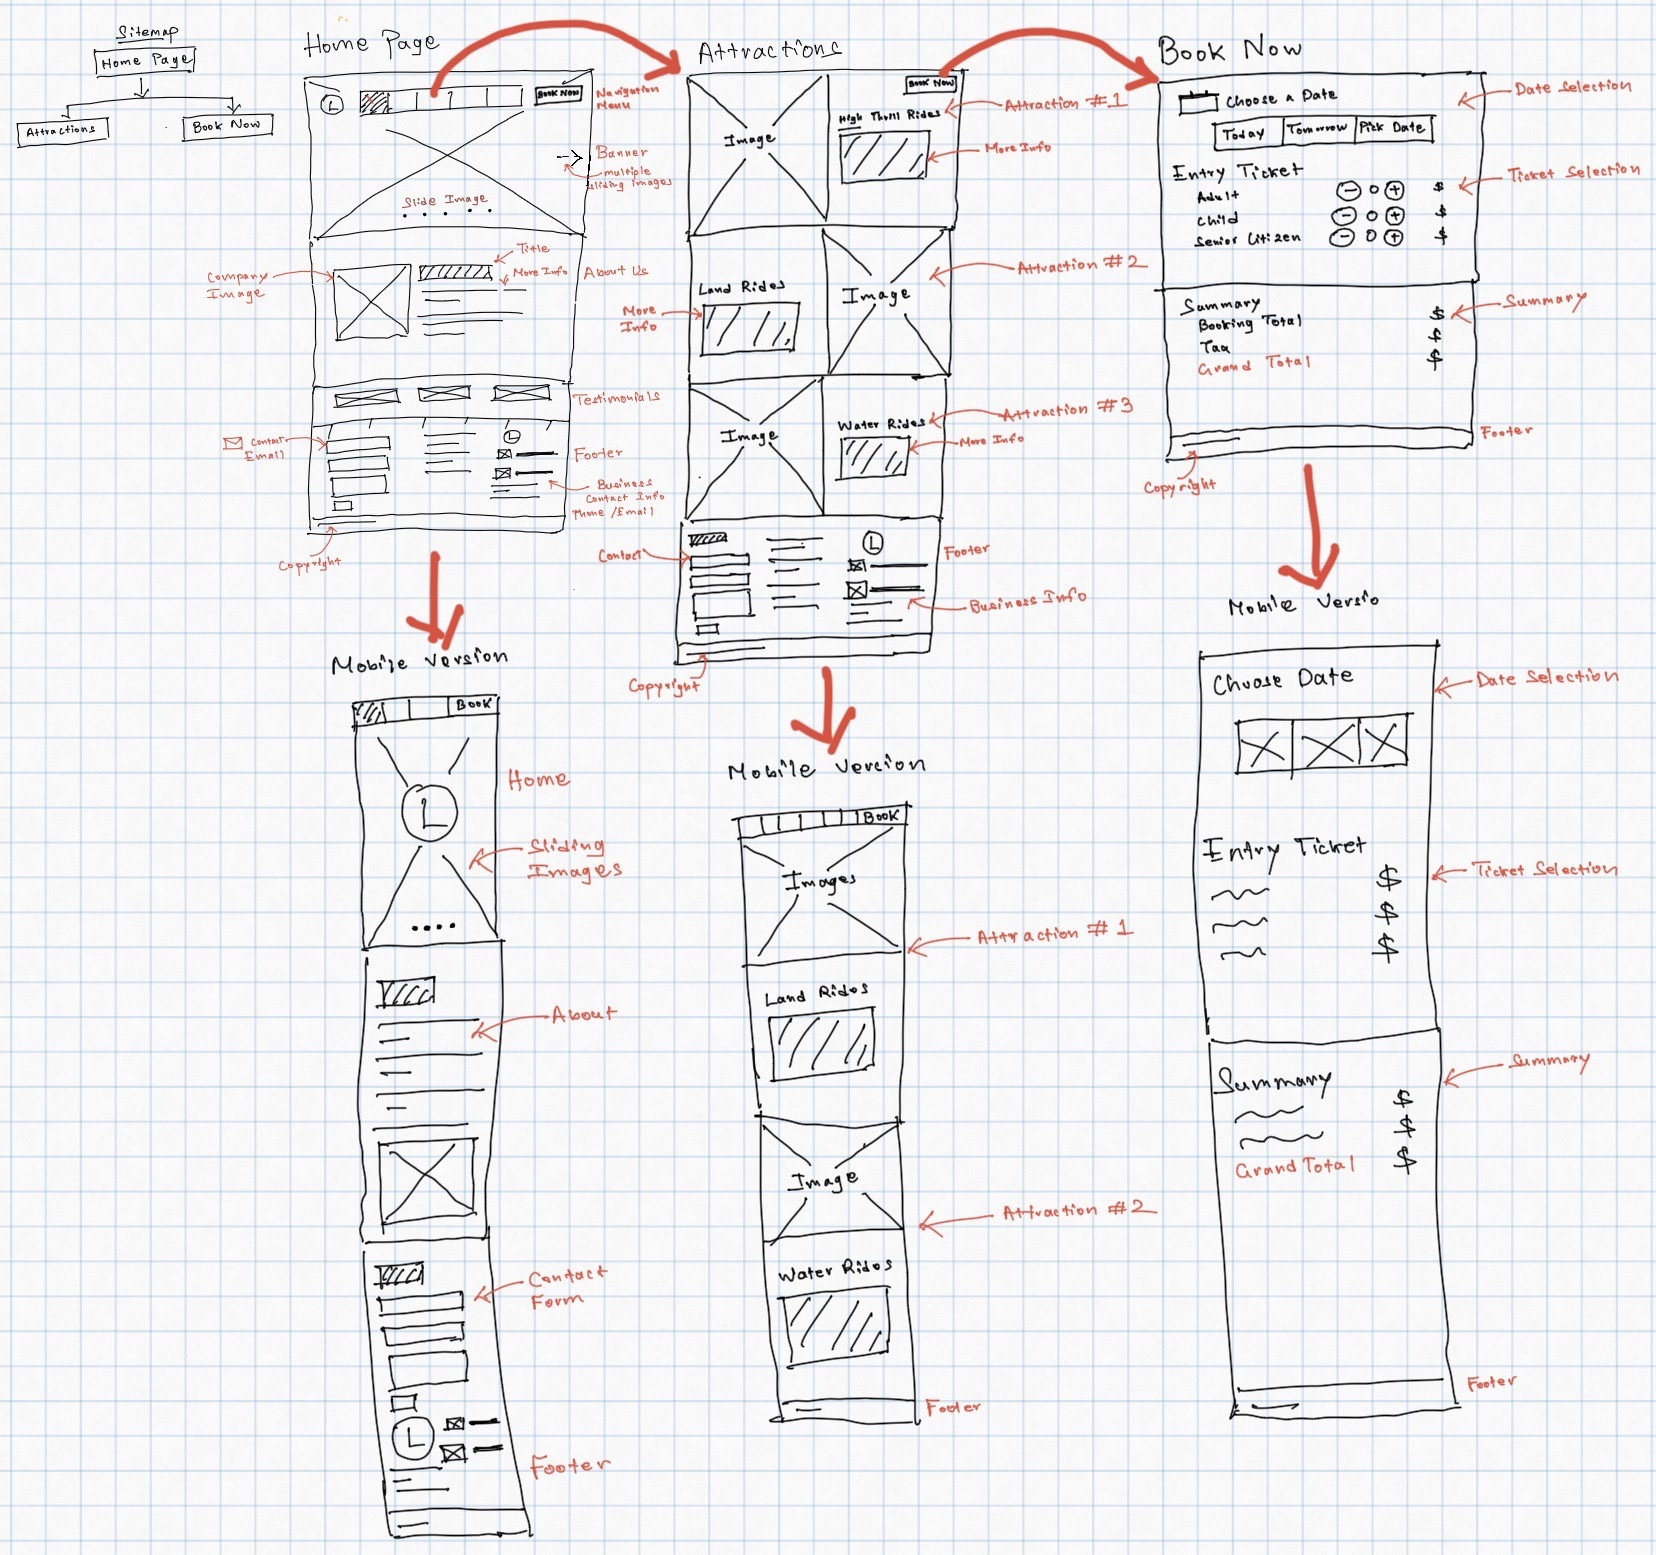 Sitemap
Home Page
Attractions
Book Now
Home Page
L
Book Now
Navigation
Menu
Banner
multiple
sliding images
Slide Image
Company
Image
Title
More Info
About Us
Testimonials
Contact
Email
L
Footer
Business
Contact Info
Phone /Email
Copyright
Mobile Version
BOOK
L
Home
Sliding
Images
About
Contact
Form
L
Footer
Attractions
Book Now
Image
High Thrill Rides
Attraction #1
More Info
Land Rides
More
Info
Image
Attraction #2
Image
Water Rides
Attraction #3
More Info
Contact
L
Footer
Business Info
Copyright
Mobile Version
BOOK
Images
Attraction #1
Land Rides
Image
Attraction #2
Water Rides
Footer
Book Now
Choose a Date
Date Selection
Today Tomorrow Pick Date
Entry Ticket
Ticket Selection
Adult - 0 + $
Child - 0 + $
Senior Citizen - 0 + $
Summary
Summary
Booking Total $
Tax $
Grand Total $
Footer
Copyright
Mobile Versio
Choose Date
Date Selection
Entry Ticket
Ticket Selection
$
$
$
Summary
Summary
$
$
Grand Total $
Footer